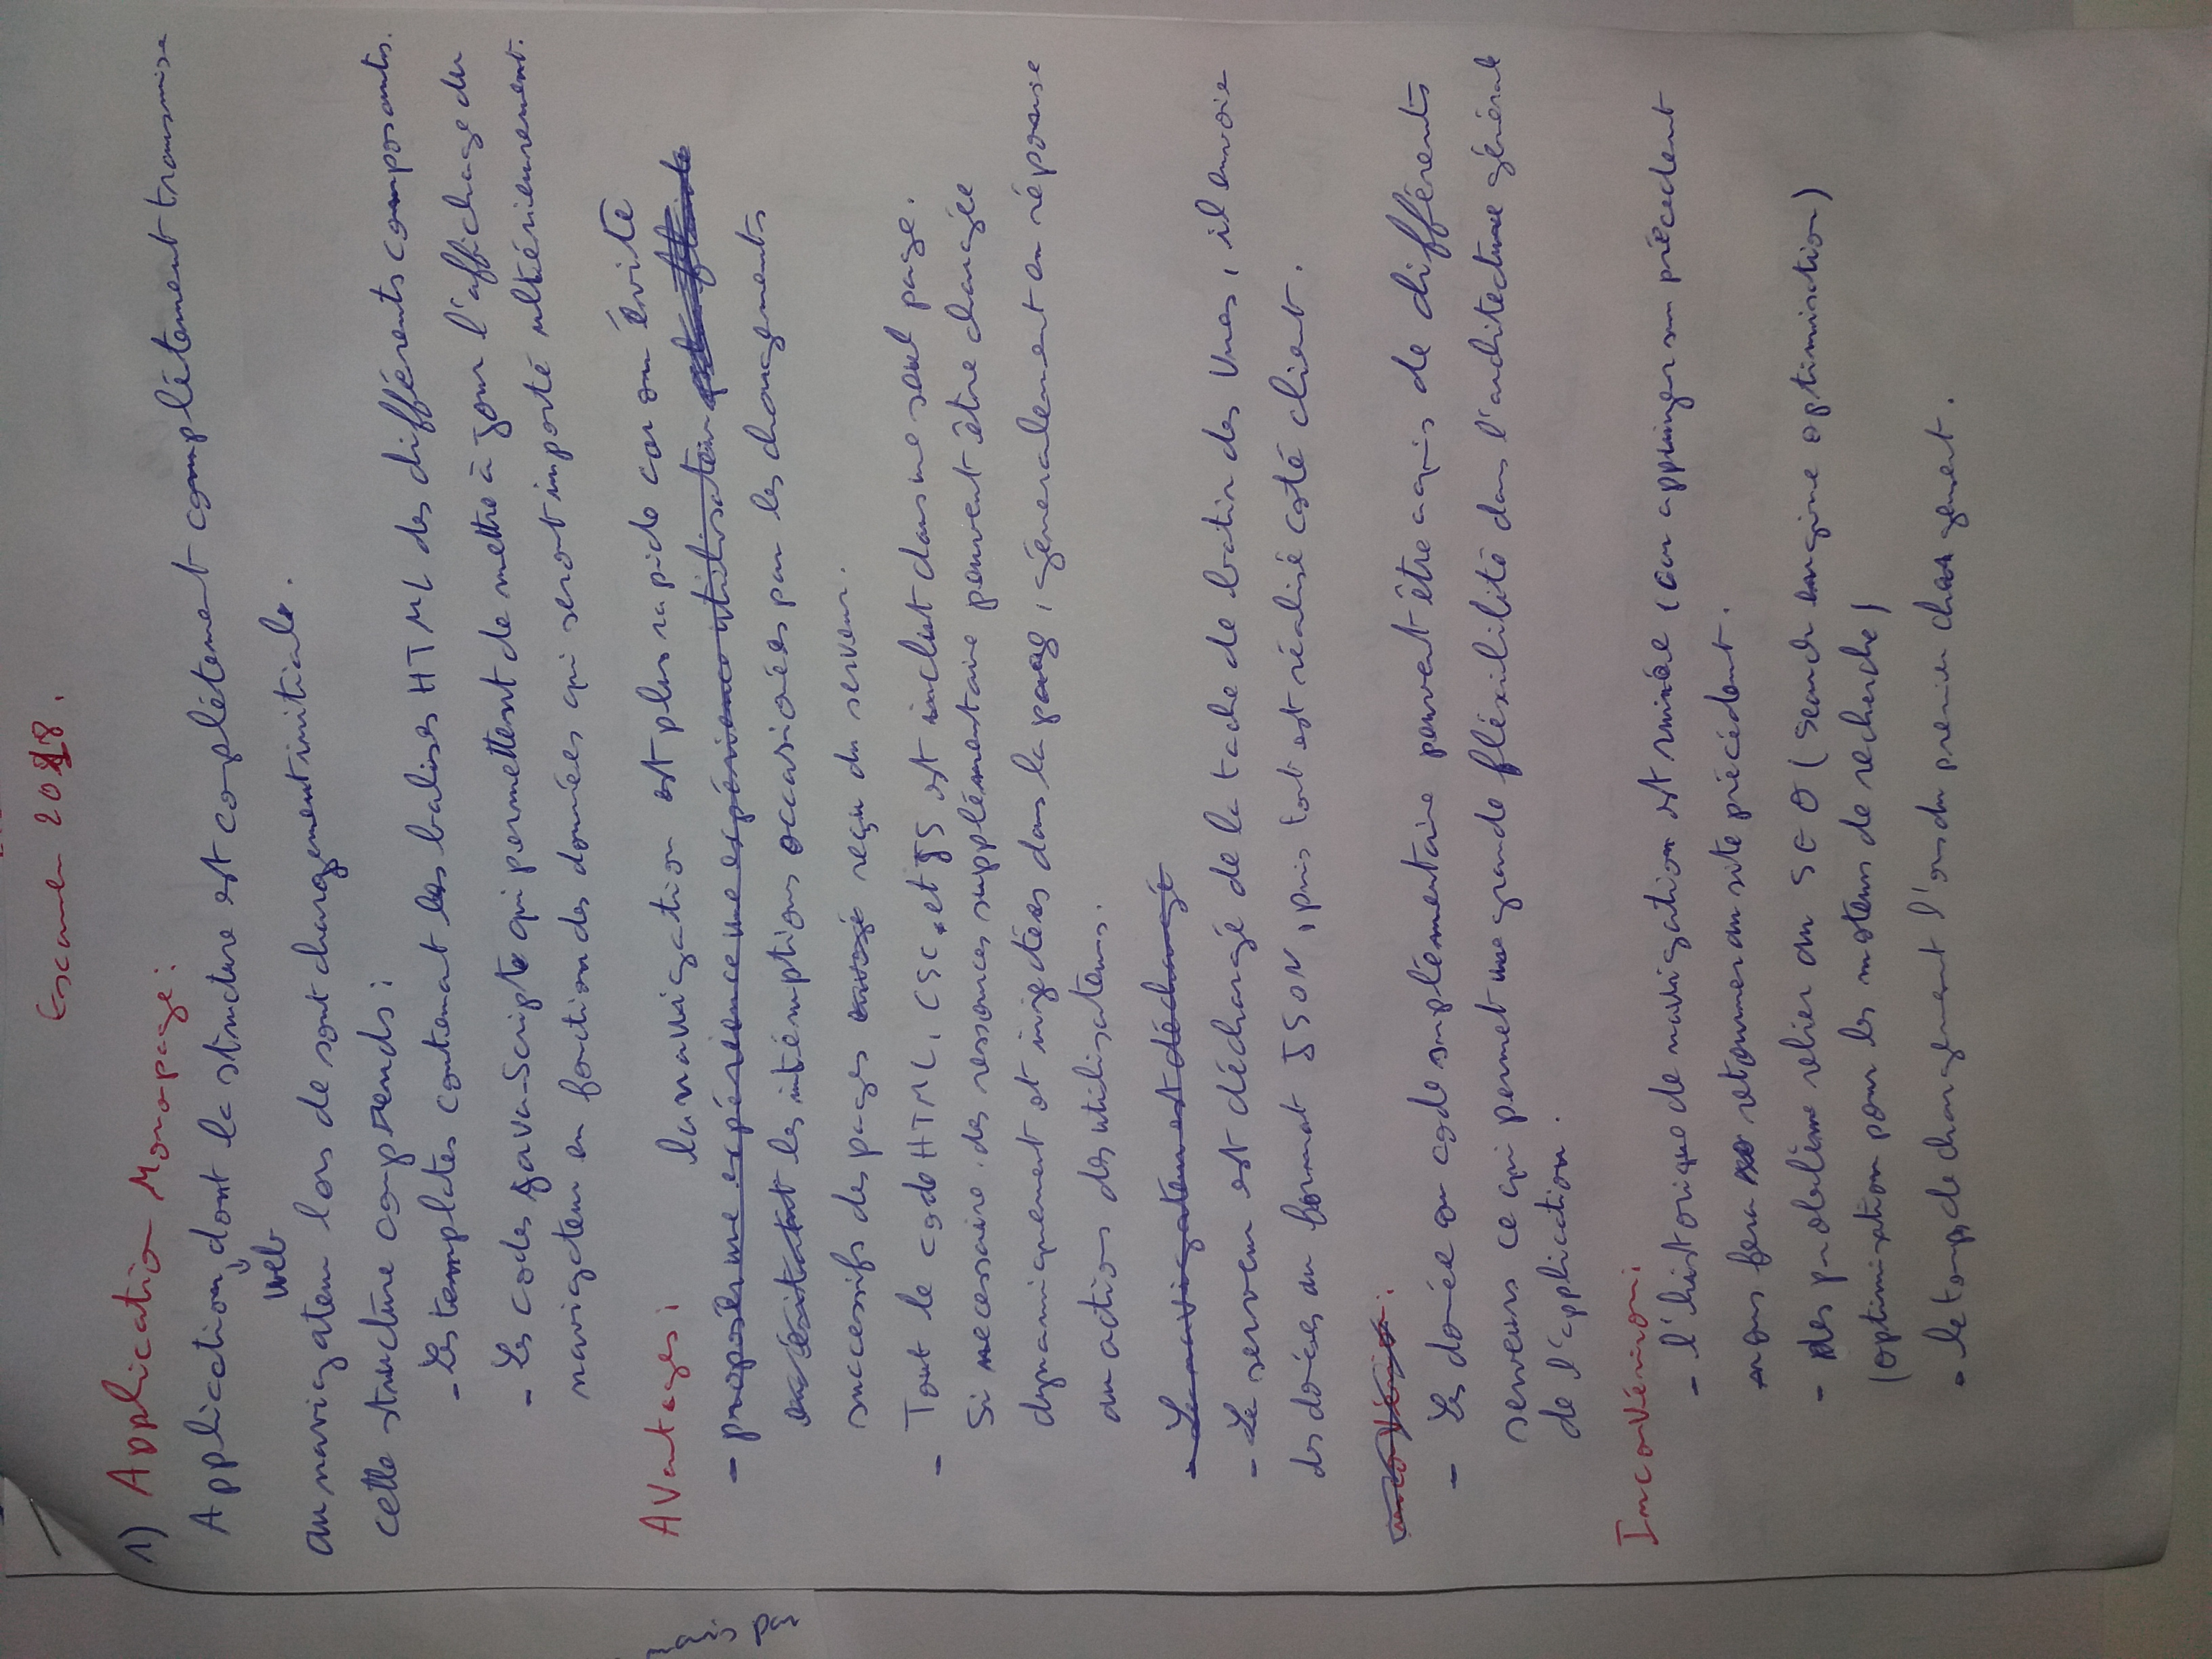 Examen 2018.
1) Application Monopage :
Application dont la structure est coplétement complétement transmise
web
au navigateur lors de sont chargement initiale.
cette structure comprends :
- Les templates contenant les balises HTML des différents composants.
- Les codes java-Scripte qui permettent de mettre à jour l'affichage du
navigateur en fonction des données qui seront importé ultérieurement.
Avantages :
la navigation est plus rapide car on évite
- proposer une expérience une expérience utilisateur plus fluide
en évitant les intéruptions occasionées par les chargements
successifs des pages envoyé reçu du serveur.
- Tout le code HTML, CSC et JS est inclut dans une seul page.
Si necessaire des ressources supplémentaire peuvent être chargée
dynamiquement et injectées dans la page, géneralement en réponse
au actions des utilisateurs.
- Le navigateur est déchargé
- Le serveur est déchargé de la tache de batir des Vues, il envoie
des donées au format JSON, puis tout est réalisé coté client.
- Les donée ou code suplémentaire peuvent être aquis de différents
serveurs ce qui permet une grande fléxibilité dans l'architecture générale
de l'application.
- l'historique de navigation est ruinée, car appuyer sur précedent
nous fera retourner au site précédent.
- des problème relier au SEO (Search engine optimisation)
(optimisation pour les moteurs de recherche)
- le temps de chargement l'ors du premier chargement.
mais par